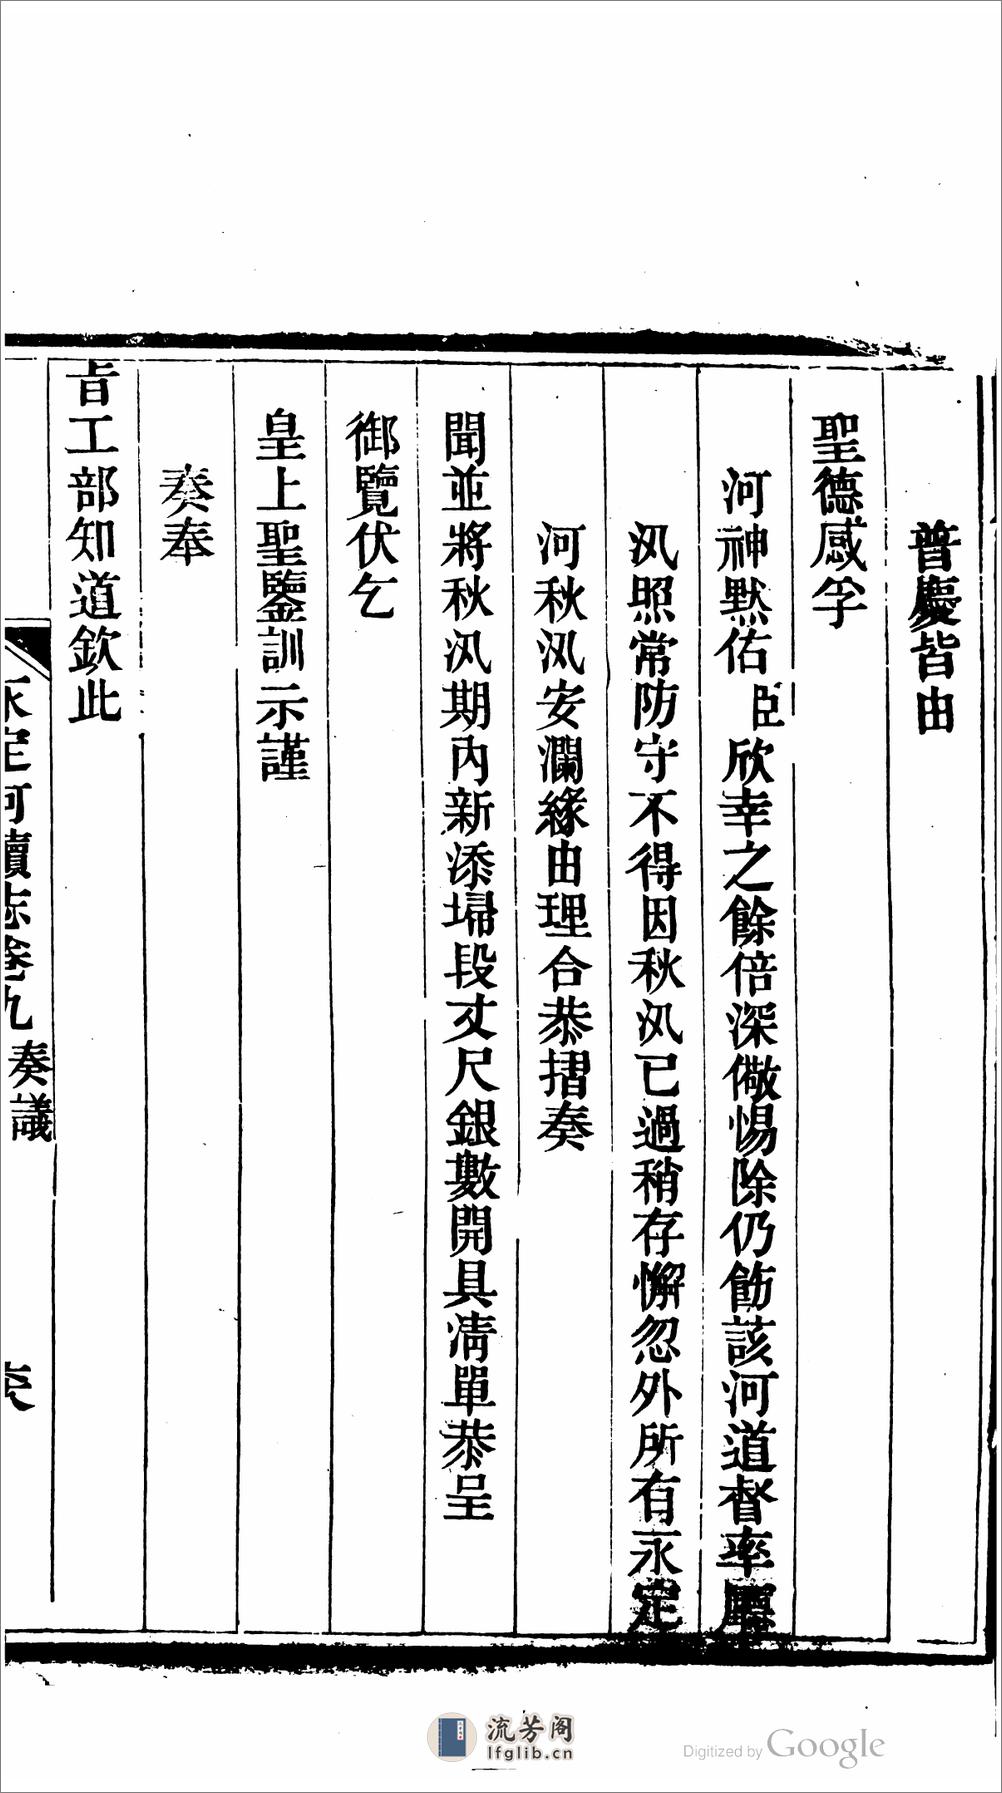 普慶皆由
聖德感孚
河神默佑臣欣幸之餘倍深儆惕除仍飭該河道督率廳
汛照常防守不得因秋汛已過稍存懈忽外所有永定
河秋汛安瀾緣由理合恭摺奏
聞並將秋汛期內新添埽段丈尺銀數開具清單恭呈
御覽伏乞
皇上聖鑒訓示謹
奏奉
旨工部知道欽此
永定河續志卷九 奏議
流芳阁
lfglib.cn
Digitized by Google